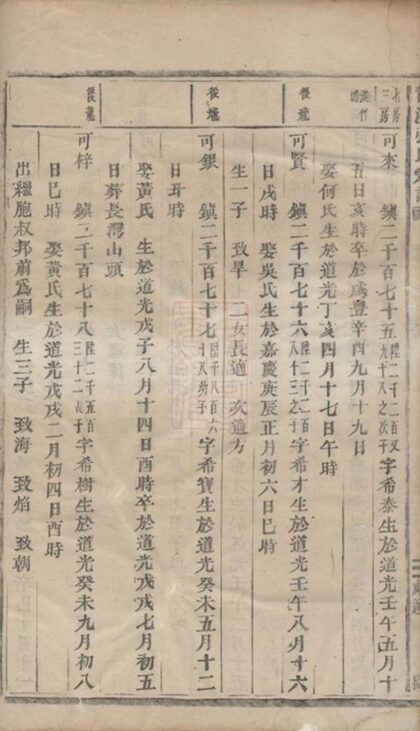 七房
三房
可來 鎮二千百七十五陸二千二百又九十八之次子字希泰生於道光壬午五月十
五日亥時卒於咸豐辛酉九月十九日
娶何氏生於道光丁亥四月十七日午時
後龍
可賢 鎮二千百七十六陸二千二百八十三之子字希才生於道光壬午八月十六
日戌時 娶吳氏生於嘉慶庚辰正月初六日巳時
生一子 致早 二女長適 次適方
後龍
可銀 鎮二千百七十七字希寶生於道光癸未五月十二
日丑時
娶黃氏 生於道光戊子八月十四日酉時卒於道光戊戌七月初五
日葬長灣山頭
後龍
可梓 鎮二千百七十八陸二千五百三十二長子字希樹生於道光癸未九月初八
日巳時 娶黃氏生於道光戊戌二月初四日酉時
出繼胞叔邦前爲嗣 生三子 致海 致焰 致朝